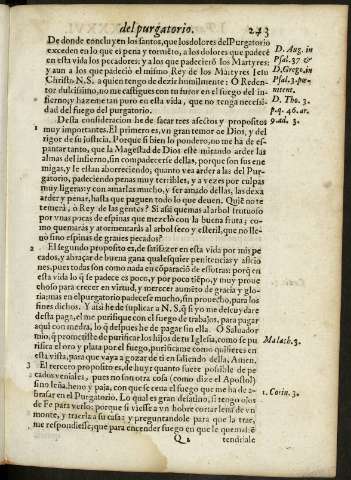 del purgatorio. 243
De donde concluyen los santos, que los dolores del Purgatorio
exceden en lo que es pena y tormẽto, a los dolores que padecẽ
en esta vida los pecadores; y a los que padecierõ los Martyres:
y aun a los que padeciò el mismo Rey de los Martyres Iesu
Christo N.S. a quien tengo de dezir humilmente: O Redentor
dulcissimo, no me castigues con tu furor en el fuego del infierno;
y hazeme tan puro en esta vida, que no tenga necessidad
del fuego del purgatorio.
D. Aug. in
Psal. 37 &
D. Grego. in
Psal. 3. pœnitent.
D. Tho. 3.
p. q. 46. ar.
9. ad. 3.
Desta consideracion he de sacar tres afectos y propositos
1 muy importantes. El primero es, vn gran temor de Dios, y del
rigor de su justicia. Porque si bien lo pondero, no me ha de espantar
tanto, que la Magestad de Dios estè mirando arder las
almas del infierno, sin compadecerse dellas, porque son sus enemigas,
y le estan aborreciendo, quanto vea arder a las del Purgatorio,
padeciendo penas muy terribles, y a vezes por culpas
muy ligeras: y con amarlas mucho, y ser amado dellas, las dexa
arder y penar, hasta que paguen todo lo que deuen. Quiẽ no te
temerà, o Rey de las gentes? Si assi quemas al arbol frutuoso
por vnas pocas de espinas que mezclò con la buena fruta; como
quemaràs y atormentaràs al arbol seco y esteril, que no lleuò
sino espinas de graues pecados?
2 El segundo proposito es, de satisfazer en esta vida por mis pecados,
y abraçar de buena gana qualesquier penitencias y aflicciones,
pues todas son como nada en cõparaciõ de essotras: porq̃ en
esta vida lo q̃ se padece es poco, y por poco tiẽpo, y muy prouechoso
para crecer en virtud, y merecer aumẽto de gracia y gloria;
mas en el purgatorio padecese mucho, sin prouecho, para los
fines dichos. Y assi he de suplicar a N.S. q̃ si yo me descuydare
desta paga, el me purifique con el fuego de trabajos, para pagar
aqui con medra, lo q̃ despues he de pagar sin ella. O Saluador
mio, q̃ prometiste de purificar los hijos de tu Iglesia, como se purifica
el oro y plata por el fuego, purificame como quisieres en
esta vista, para que vaya a gozar de ti en saliendo della. Amen.
Malach. 3.
3 El tercero proposito es, de huyr quanto fuere possible de pecados
veniales, pues no son otra cosa (como dize el Apostol)
sino leña, heno y paja, con que se ceua el fuego que me ha de abrasar
en el Purgatorio. Lo qual es gran desatino, si tengo ojos
de Fe para verlo; porque si viesse a vn hobre cortar leña de vn
monte, y traerla a su casa; y preguntandole para que la trae,
me respondiesse; que para encender fuego en que le quemassẽ
1. Corin. 3.
Q 2